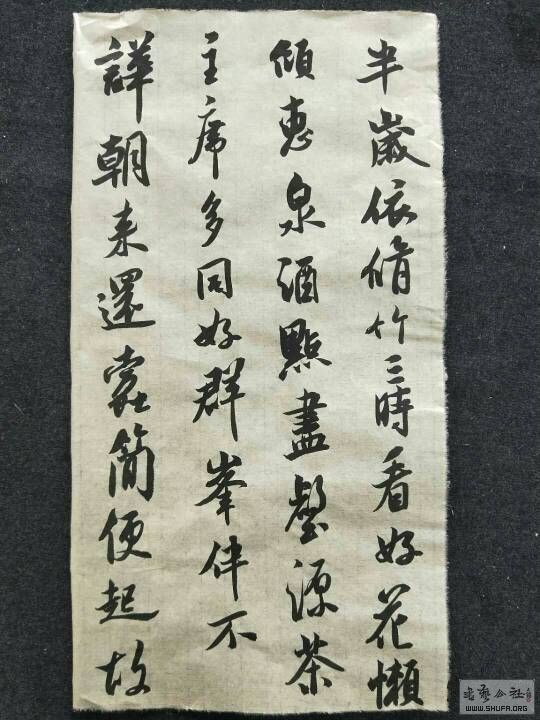 半歲依脩竹三時看好花懶
傾惠泉酒點盡壑源茶
主席多同好群峯伴不
譁朝来還蠹簡便起故
书艺公社
WWW.SHUFA.ORG